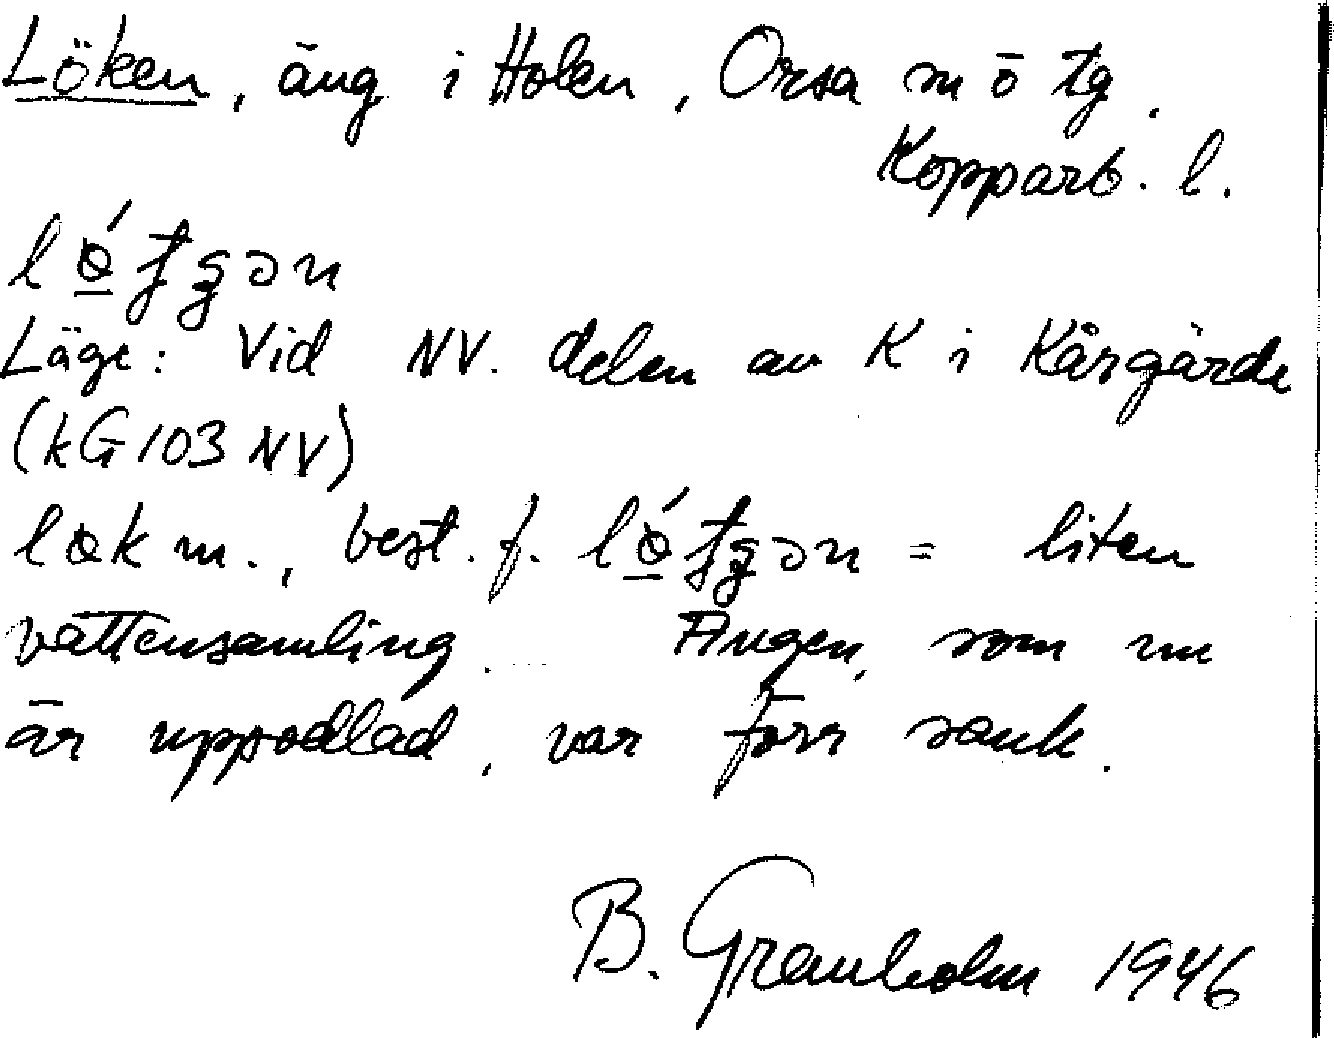 Löken, äng i Holen, Orsa sn ö tg.
Kopparb. l.
Läge: Vid NV. delen av K i Kårgärde
(kG 103 NV)
best. f. = liten
vattensamling. Ängen, som nu
är uppodlad, var förr sank.
B. Granholm 1946